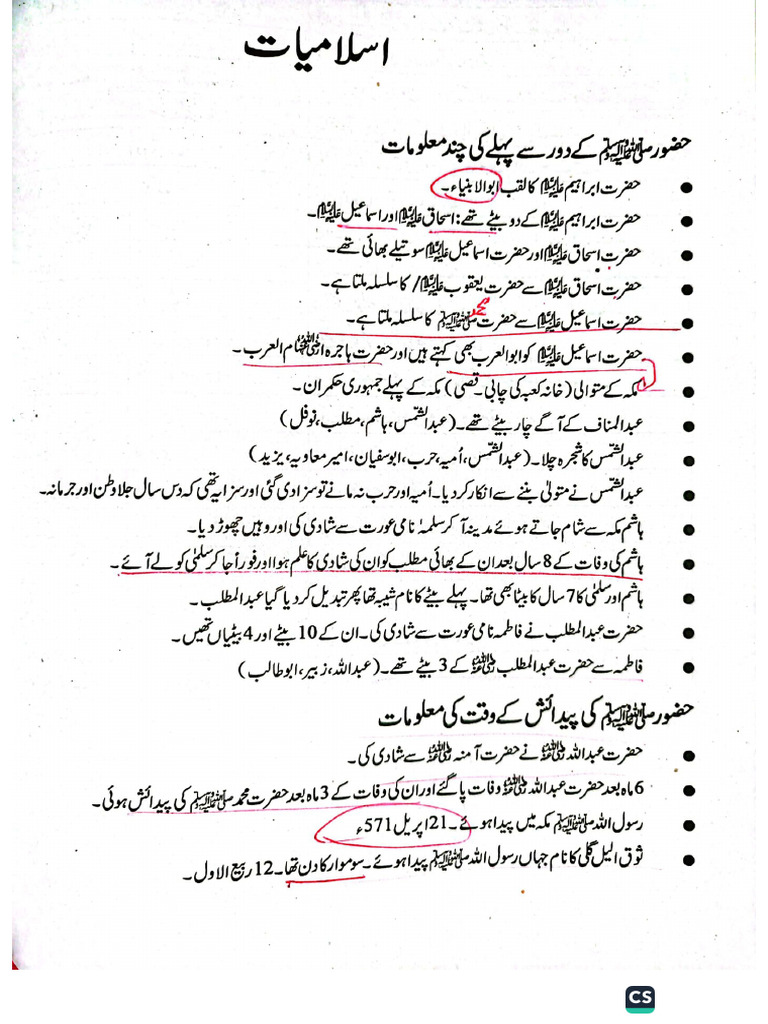 اسلامیات
حضور ﷺ کے دور سے پہلے کی چند معلومات
حضرت ابراہیم علیہ السلام کا لقب ابوالابنیاء۔
حضرت ابراہیم علیہ السلام کے دو بیٹے تھے: اسحاق علیہ السلام اور اسماعیل علیہ السلام۔
حضرت اسحاق علیہ السلام اور حضرت اسماعیل علیہ السلام سوتیلے بھائی تھے۔
حضرت اسحاق علیہ السلام سے حضرت یعقوب علیہ السلام/ کا سلسلہ ملتا ہے۔
حضرت اسماعیل علیہ السلام سے حضرت محمد ﷺ کا سلسلہ ملتا ہے۔
حضرت اسماعیل علیہ السلام کو ابوالعرب بھی کہتے ہیں اور حضرت ہاجرہ رضی اللہ عنہا ام العرب۔
مکہ کے متوالی (خانہ کعبہ کی چابی۔ قصی) مکہ کے پہلے جمہوری حکمران۔
عبدالمناف کے آگے چار بیٹے تھے۔ (عبدالشمس، ہاشم، مطلب، نوفل)
عبدالشمس کا شجرہ چلا۔ (عبدالشمس، اُمیہ، حرب، ابوسفیان، امیر معاویہ، یزید)
عبدالشمس نے متولی بننے سے انکار کر دیا۔ اُمیہ اور حرب نہ مانے تو سزا دی گئی اور سزا یہ تھی کہ دس سال جلا وطن اور جرمانہ۔
ہاشم مکہ سے شام جاتے ہوئے مدینہ آ کر سلمہٰ نامی عورت سے شادی کی اور وہیں چھوڑ دیا۔
ہاشم کی وفات کے 8 سال بعد ان کے بھائی مطلب کو ان کی شادی کا علم ہوا اور فوراً جا کر سلمیٰ کو لے آئے۔
ہاشم اور سلمٰی کا 7 سال کا بیٹا بھی تھا۔ پہلے بیٹے کا نام شیبہ تھا پھر تبدیل کر دیا گیا عبدالمطلب۔
حضرت عبدالمطلب نے فاطمہ نامی عورت سے شادی کی۔ ان کے 10 بیٹے اور 4 بیٹیاں تھیں۔
فاطمہ سے حضرت عبدالمطلب رضی اللہ عنہ کے 3 بیٹے تھے۔ (عبداللہ، زبیر، ابوطالب)
حضور ﷺ کی پیدائش کے وقت کی معلومات
حضرت عبداللہ رضی اللہ عنہ نے حضرت آمنہ رضی اللہ عنہ سے شادی کی۔
6 ماہ بعد حضرت عبداللہ رضی اللہ عنہ وفات پا گئے اور ان کی وفات کے 3 ماہ بعد حضرت محمد ﷺ کی پیدائش ہوئی۔
رسول اللہ ﷺ مکہ میں پیدا ہوئے۔ 21 اپریل 571ء
ثوق الیل گلی کا نام جہاں رسول اللہ ﷺ پیدا ہوئے۔ سوموار کا دن تھا۔ 12 ربیع الاول۔
CS